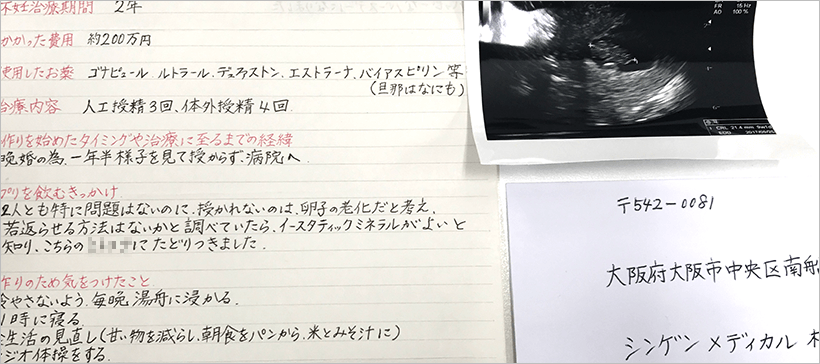 不妊治療期間 2年
かかった費用 約200万円
使用したお薬 ゴナピュール ルトラール、デュファストン、エストラーナ、バイアスピリン等
(旦那はなにも)
治療内容 人工授精3回、体外授精4回
作りを始めたタイミングや治療に至るまでの経緯
晩婚の為、一年半様子を見て授からず、病院へ
プリを飲むきっかけ
2人とも特に問題はないのに、授かれないのは、卵子の老化だと考え、
若返らせる方法はないかと調べていたら、イースタティックミネラルがよいと
知り、こちらの にたどりつきました。
作りのため気をつけたこと
冷やさないよう、毎晩湯舟に浸かる。
時に寝る
生活の見直し(甘い物を減らし、朝食をパンから、米とみそ汁に)
ジオ体操をする。
FR 15 Hz
AO 100 %
1 CRL 21.4 mm
EDD
〒542-0081
大阪府大阪市中央区南船
シンゲンメディカル